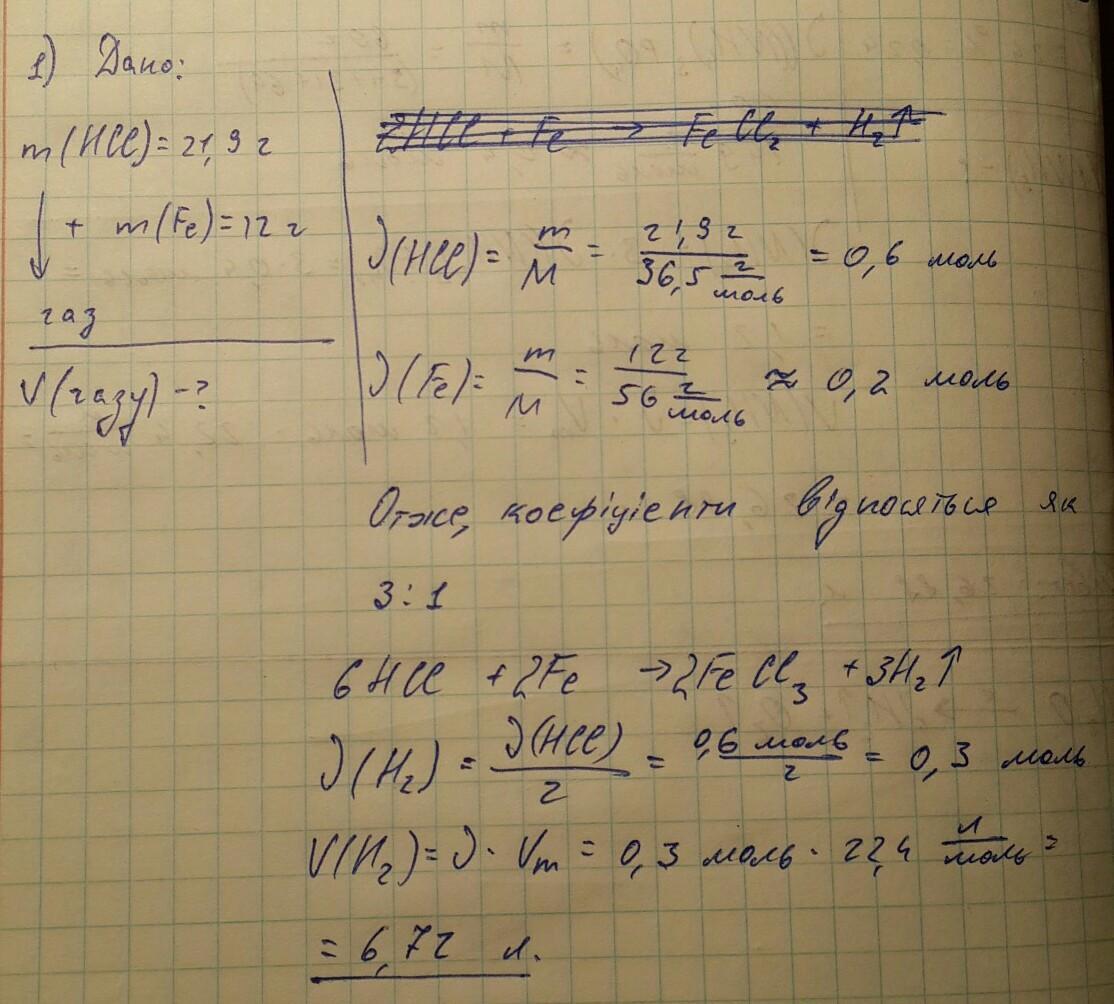 1) Дано:
m(HCl)=21,9 г
↓ + m(Fe)=12 г
газ
V(газу)-?
2HCl + Fe → FeCl₂ + H₂↑
ν(HCl) = m/M = 21,9 г / 36,5 г/моль = 0,6 моль
ν(Fe) = m/M = 12 г / 56 г/моль ≈ 0,2 моль
Отже, коефіцієнти відносяться як
3:1
6HCl + 2Fe → 2FeCl₃ + 3H₂↑
ν(H₂) = ν(HCl)/2 = 0,6 моль/2 = 0,3 моль
V(H₂) = ν · Vm = 0,3 моль · 22,4 л/моль =
= 6,72 л.